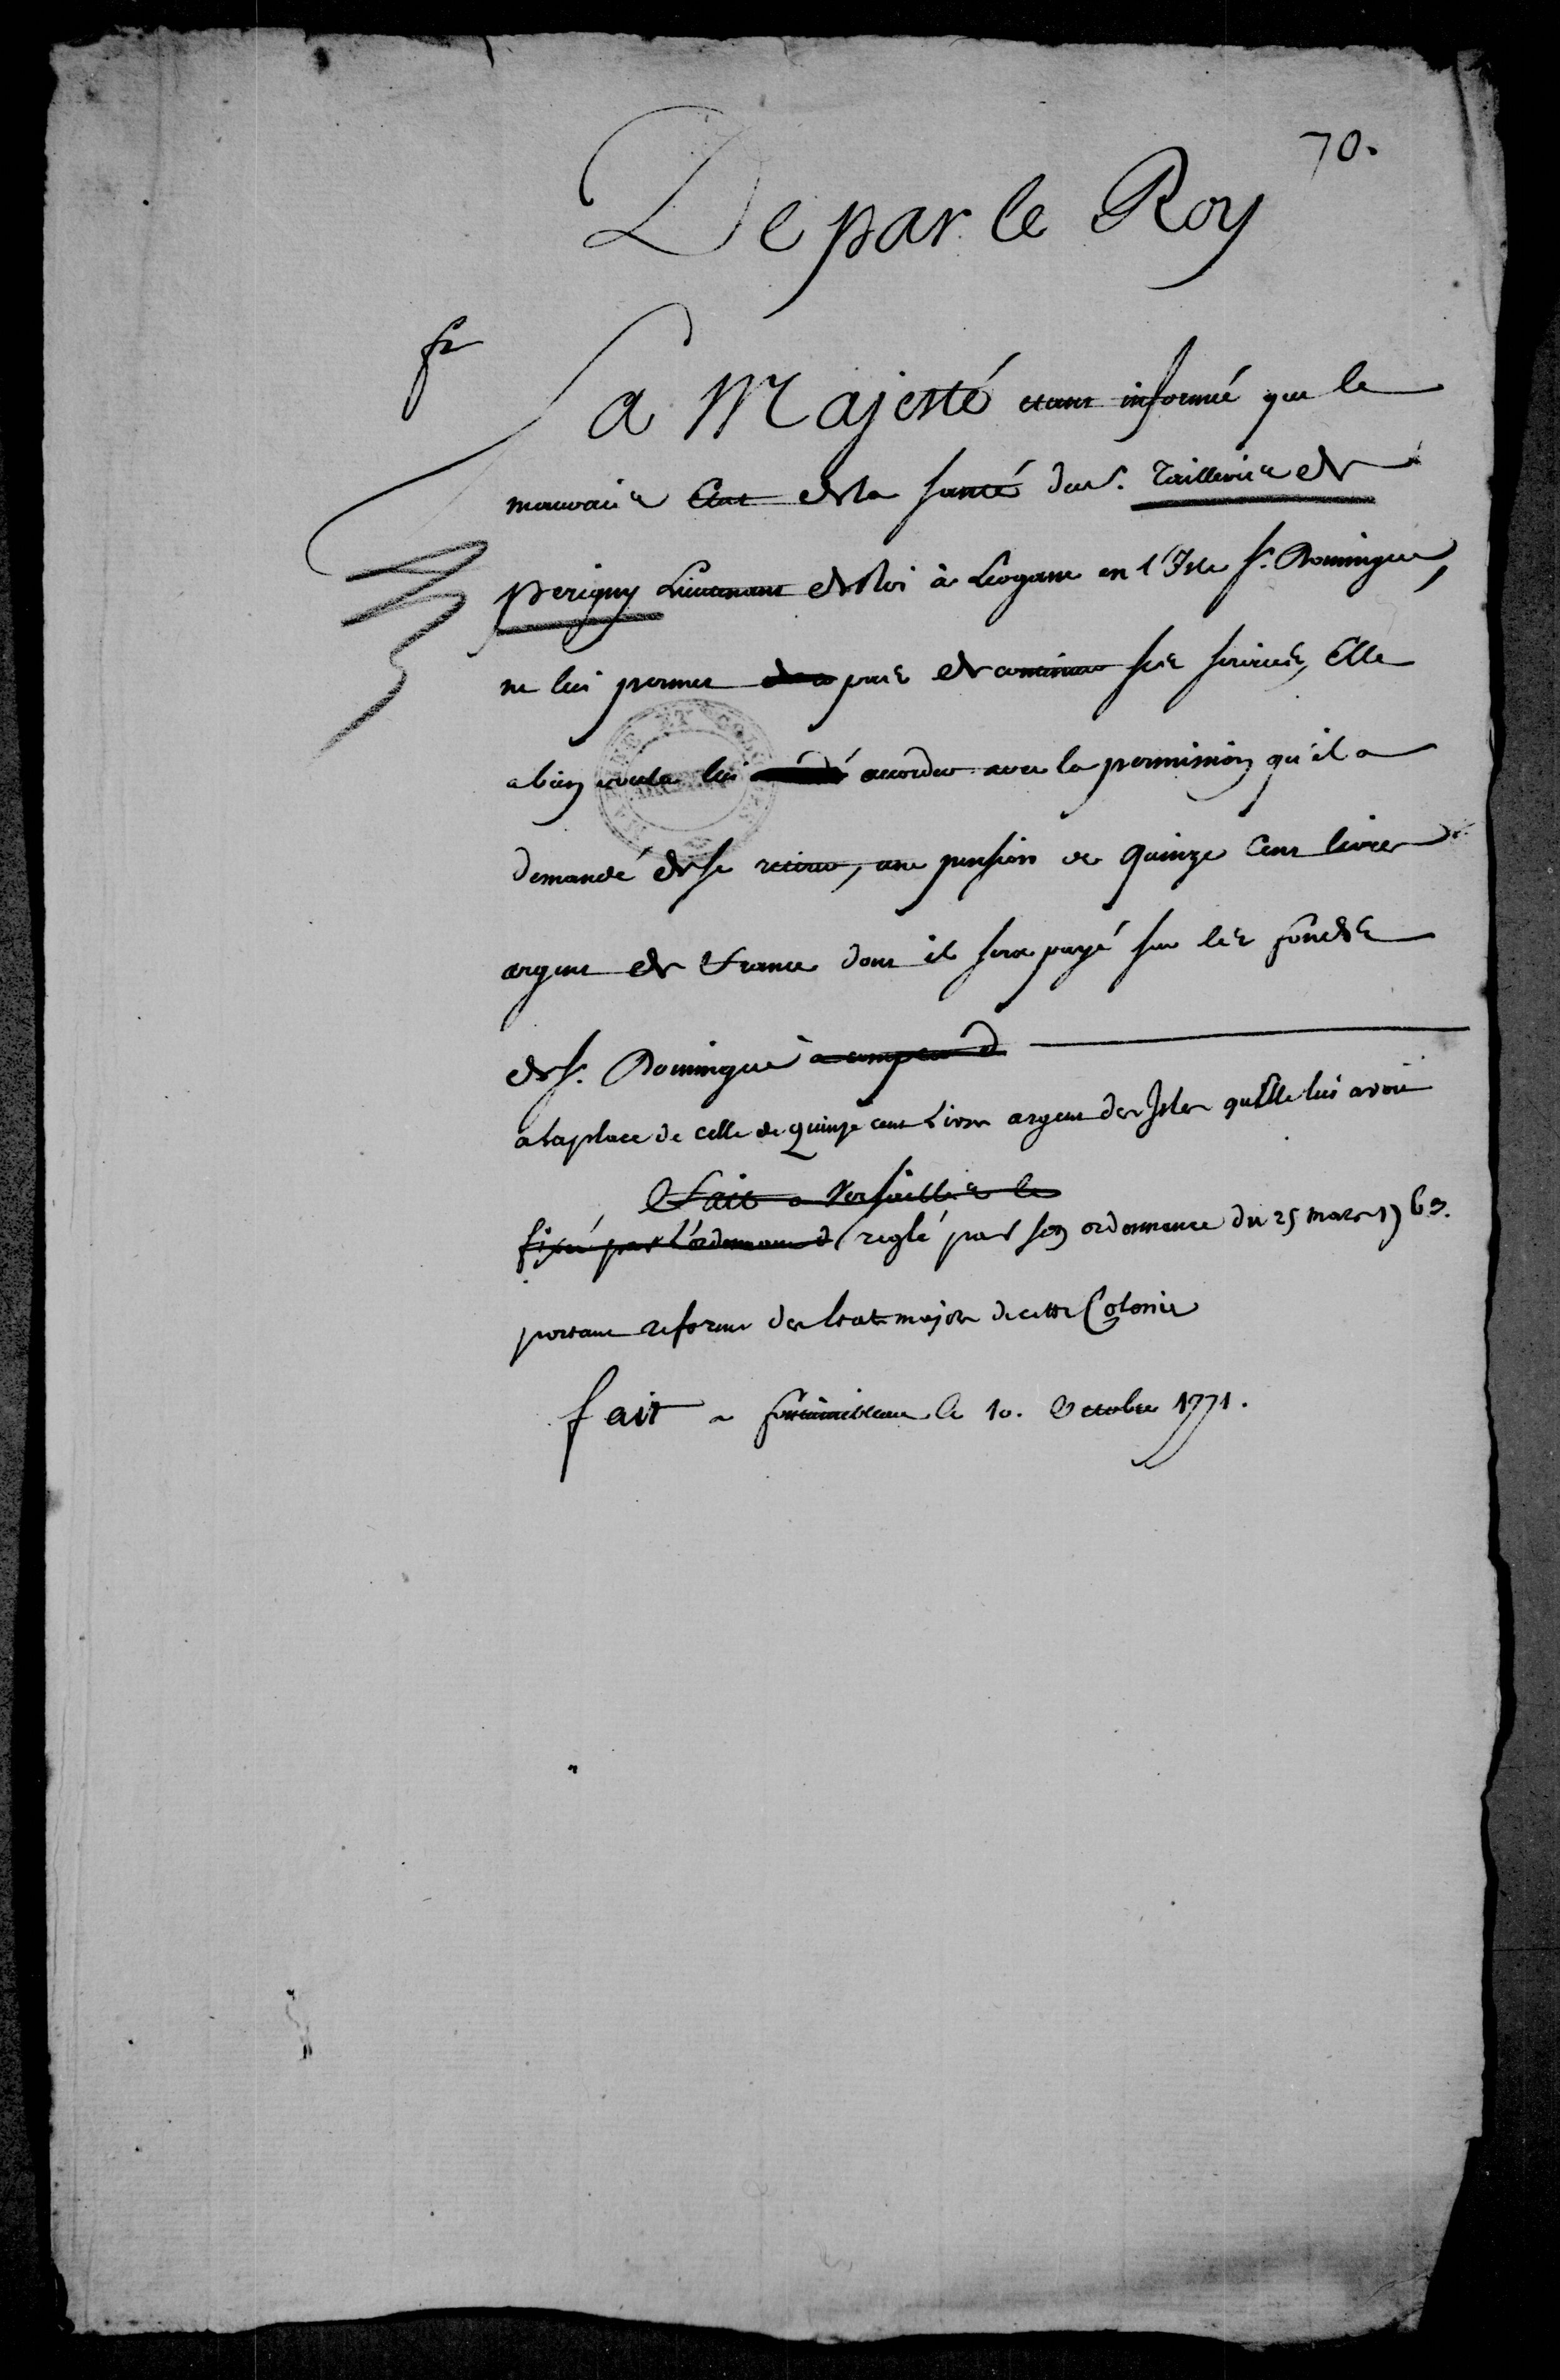 70.
De par le Roy
fr
Sa Majesté etant informée que le
mauvais Etat de la santé du S. Taillevis de
perigny Lieutenant de Roi à Leogane en l'Isle St. Domingue,
ne lui permet pas de continuer ses services, Elle
a bien voulu lui accorder avec la permission qu'il a
demandé de se retirer, une pension de quinze Cent livres
argent de France dont il sera payé sur les fonds
de St. Domingue a compter d
a la place de celle de quinze cent Livres argent des Isles qu'Elle lui avoit
Fait a Versailles le
fixée par l'ordonnance d reglé par son ordonnance du 25 mars 1763.
portant reforme des Etats majors de cette Colonie
fait a fontainebleau le 10. Octobre 1771.
MARINE ET COLONIES